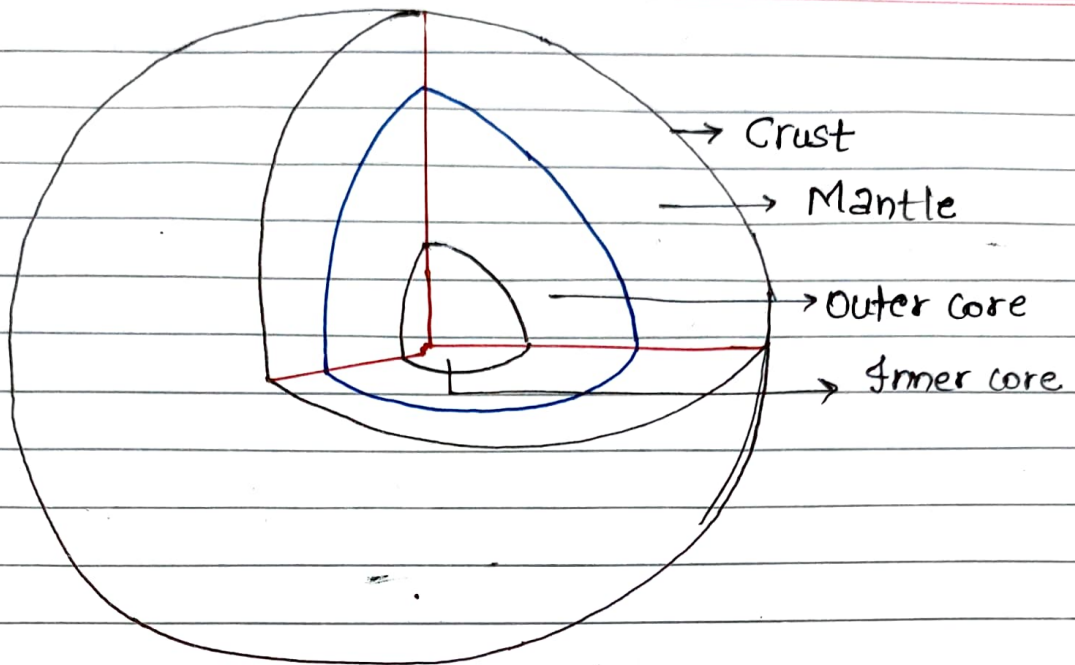 Crust
Mantle
Outer core
Inner core